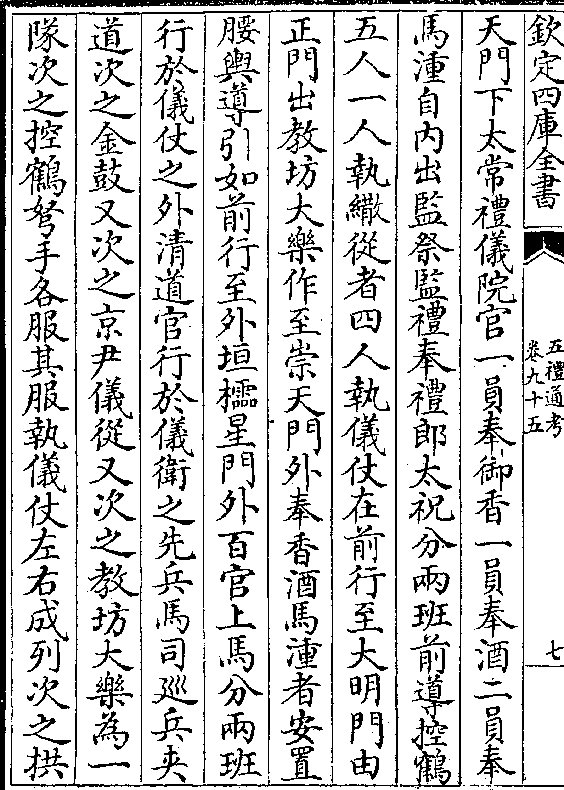 欽定四庫全書
五禮通考
卷九十五
七
天門下太常禮儀院官一員奉御香一員奉酒二員奉
馬湩自内出監祭監禮奉禮郎太祝分兩班前導控鶴
五人一人執繖從者四人執儀仗在前行至大明門由
正門出教坊大樂作至崇天門外奉香酒馬湩者安置
腰輿導引如前行至外垣櫺星門外百官上馬分兩班
行於儀仗之外清道官行於儀衛之先兵馬司廵兵夾
道次之金鼓又次之京尹儀從又次之教坊大樂為一
隊次之控鶴弩手各服其服執儀仗左右成列次之拱